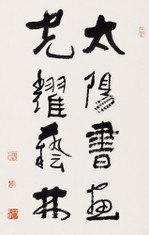 太陽書畫
光耀藝林